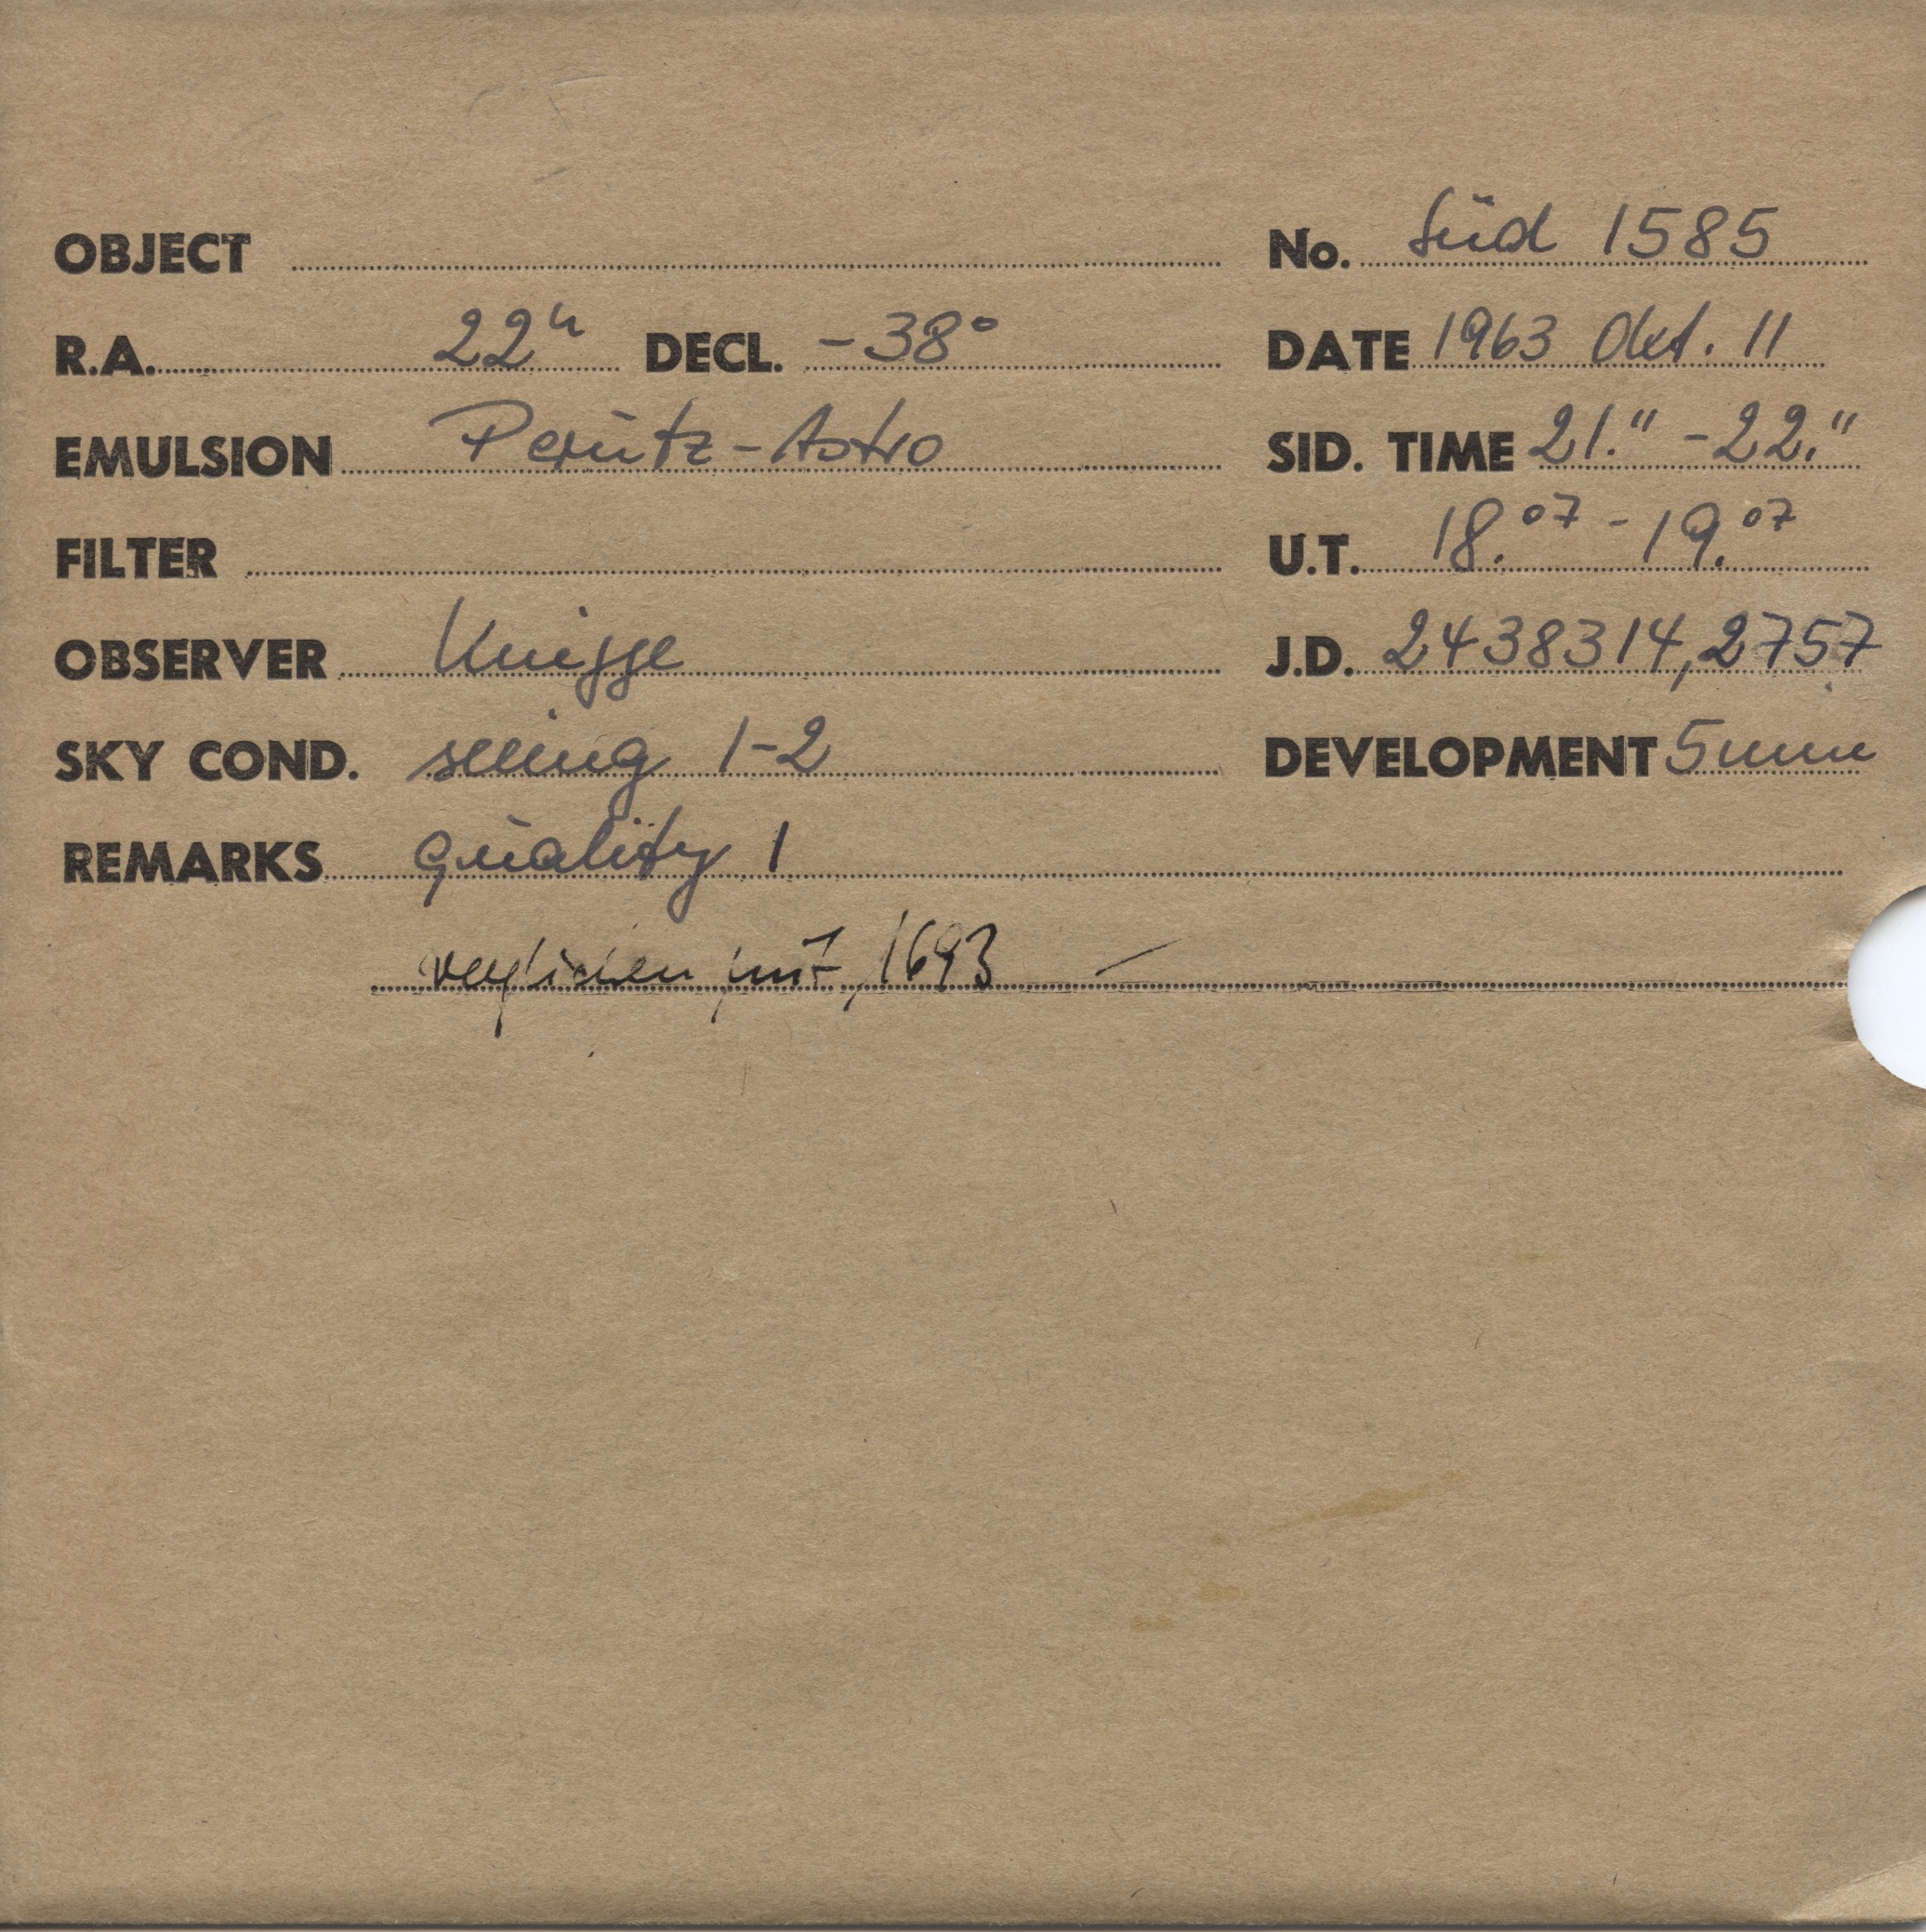 OBJECT No. Süd 1585
R.A. 22h DECL. -38° DATE 1963 Okt. 11
EMULSION Perutz-Astro SID. TIME 21.11 - 22.11
FILTER U.T. 18.07 - 19.07
OBSERVER Knigge J.D. 2438314,2757
SKY COND. seeing 1-2 DEVELOPMENT 5min
REMARKS quality 1
verglichen mit 1693 —